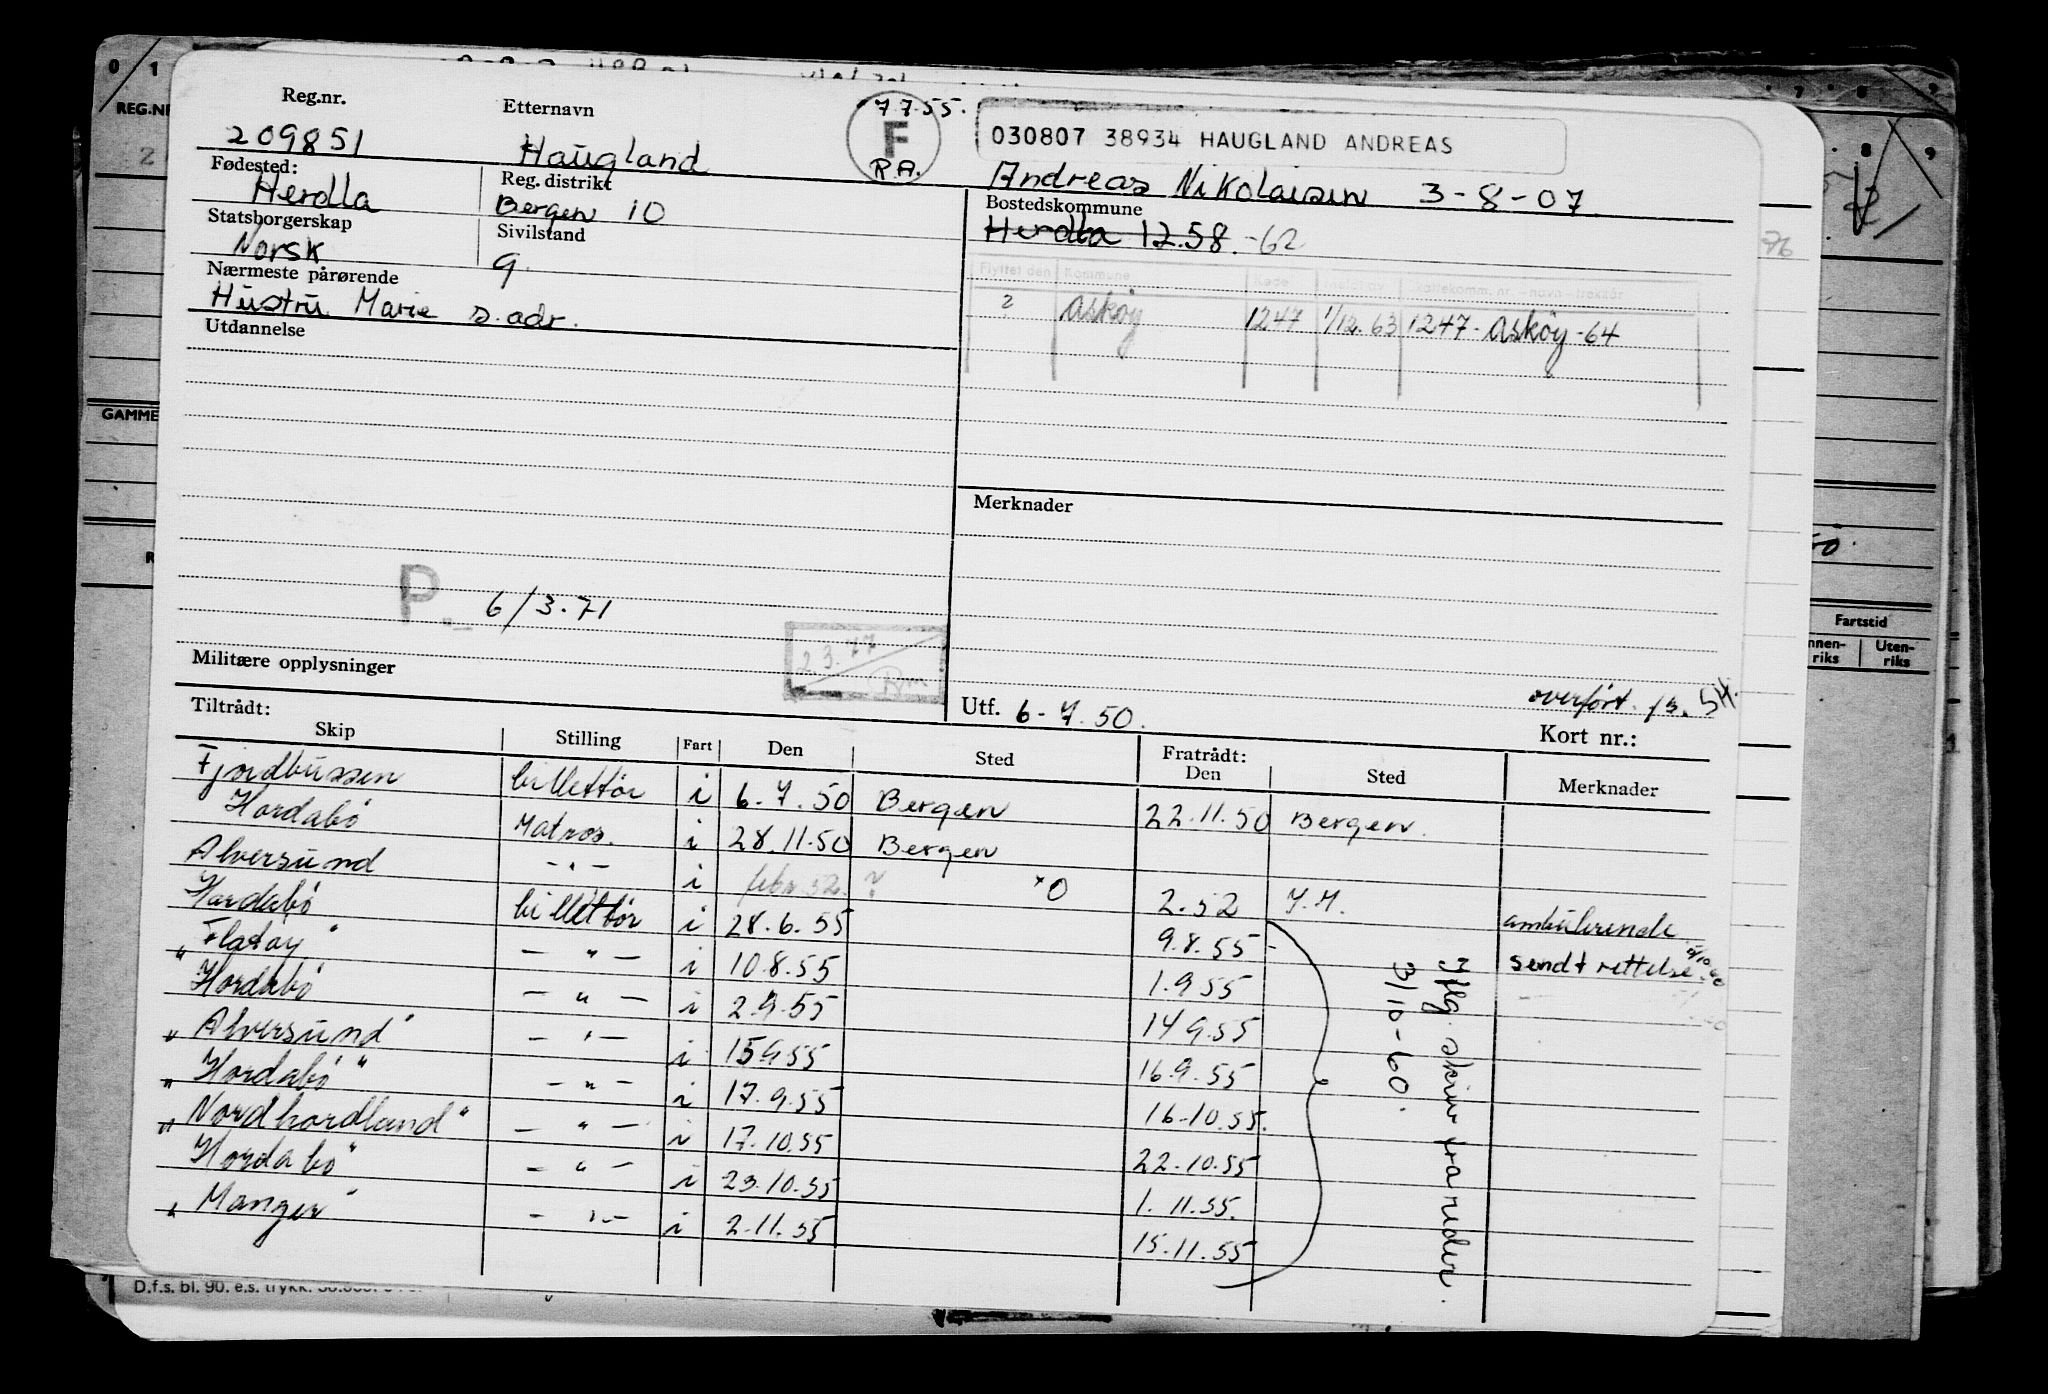 Reg.nr. Etternavn 7 7.55.
209851 Haugland F R.A. 030807 38934 HAUGLAND ANDREAS
Andreas Nikolaisen 3-8-07.
Fødested: Reg.distrikt Bostedskommune
Herdla Bergen 10 Herdla 12.58.-62
Statsborgerskap Sivilstand
Norsk g.
Flyttet den Kommune
? Askøy 1247 1/12.63 1247-Askøy-64
Nærmeste pårørende
Hustru Marie s.adr.
Utdannelse
Merknader
P 6/3.71
2.3.77
Militære opplysninger
Utf. 6-7.50. overført fr. 54.
Kort nr.:
Tiltrådt: Fratrådt:
Skip Stilling Fart Den Sted Den Sted Merknader
Fjordbussen billettør i 6.7.50 Bergen 22.11.50 Bergen.
Hordabø Matros. i 28.11.50 Bergen
Alversund -"- i febr.52. ? *O 2.52 Y.M.
Hordabø billettør i 28.6.55 9.8.55- ambulerende
"Fladøy" -"- i 10.8.55 1.9.55 sendt rettelse
Hordabø -"- i 2.9.55 14.9.55
"Alversund" -"- i 15.9.55 16.9.55
"Hordabø" -"- i 17.9.55 16-10.55.
"Nordhordland" -"- i 17.10.55 22.10.55
Hordabø" -"- i 23.10.55 1.11.55.
"Manger" -"- i 2.11.55 15.11.55
Iflg. skriv fra reder.
3/10-60.
0 1
REG.N
GAMME
7 8 9
76
Fartstid
Uten-
riks riks
D.f.s. bl. 90. e.s. trykk.